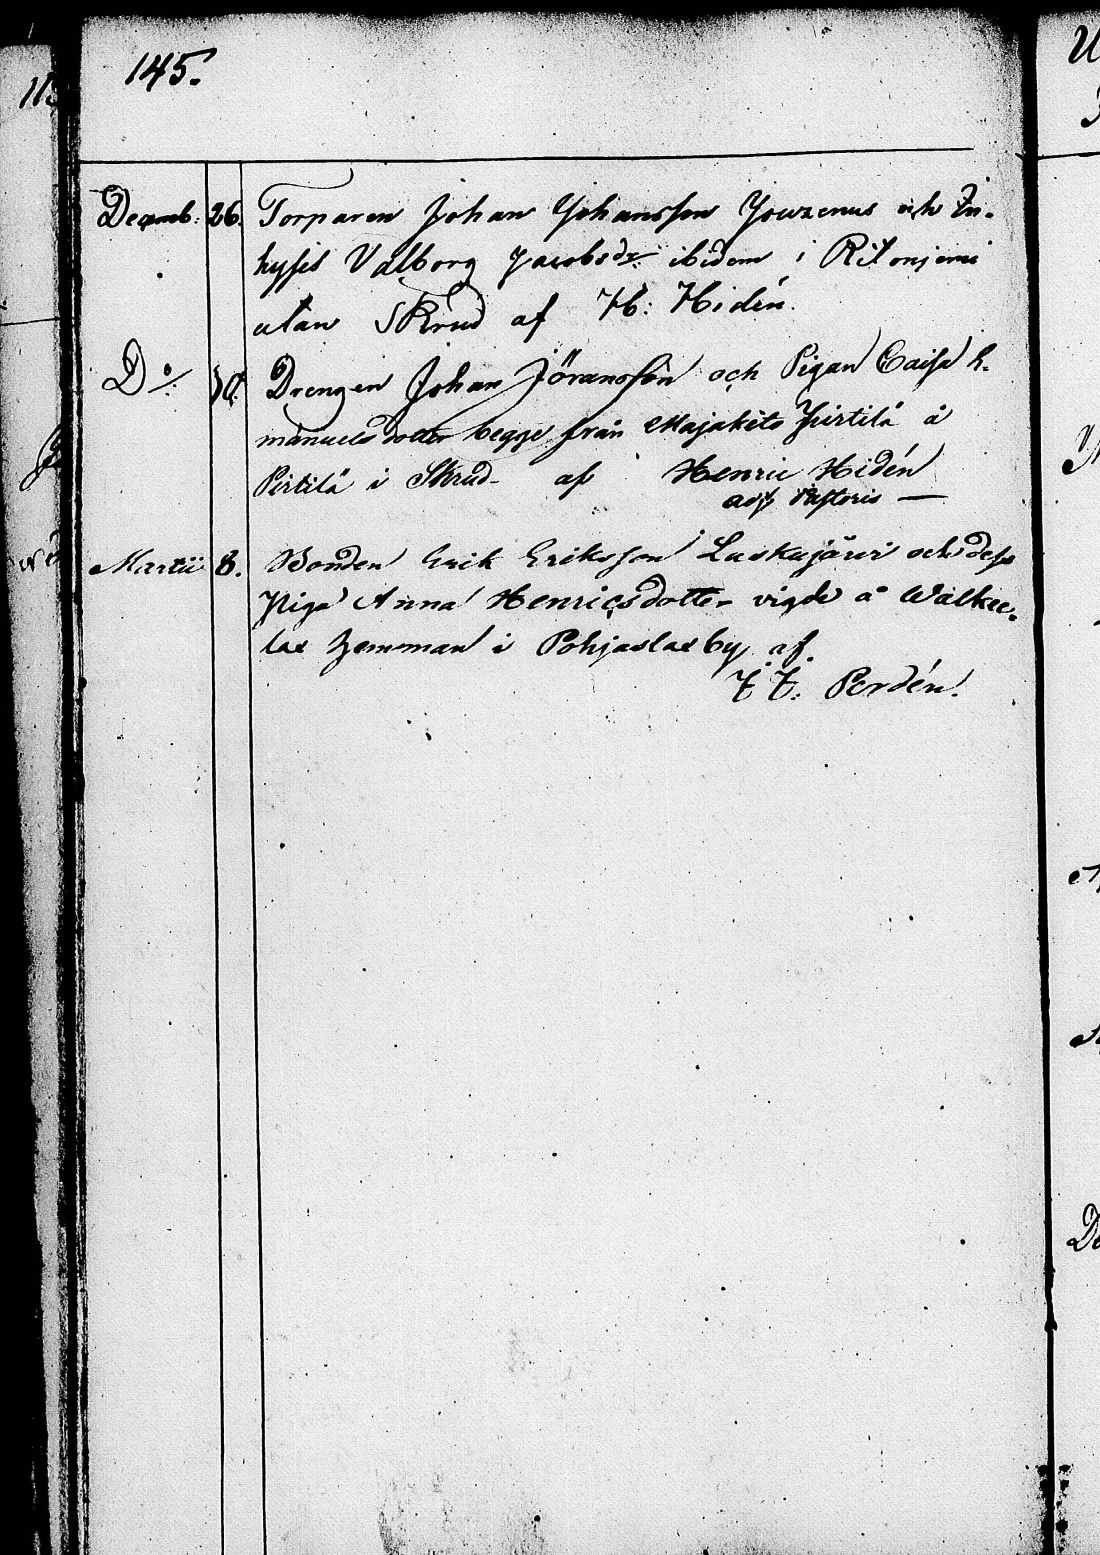 145.
Decemb: 26. Torparen Johan Johansson Jouzenus och In-
hyses Valborg Jacobsdr: ibidem i Ritonjemi
utan Skrud af H: Hidén.
Do/: 30. Drengen Johan Jöransson och Pigan Caisa E-
manuels dotter begge från Majakito Pirtilä å
Pirtilä i Skrud af Henric Hidén
adj: Pastoris —
Martii 8. Bonden Erik Eriksson Luskajärvi och dess
Piga Anna Henricsdotter vigde å Walkee-
lax hemman i Pohjaslaxby af
F. F. Perdén.